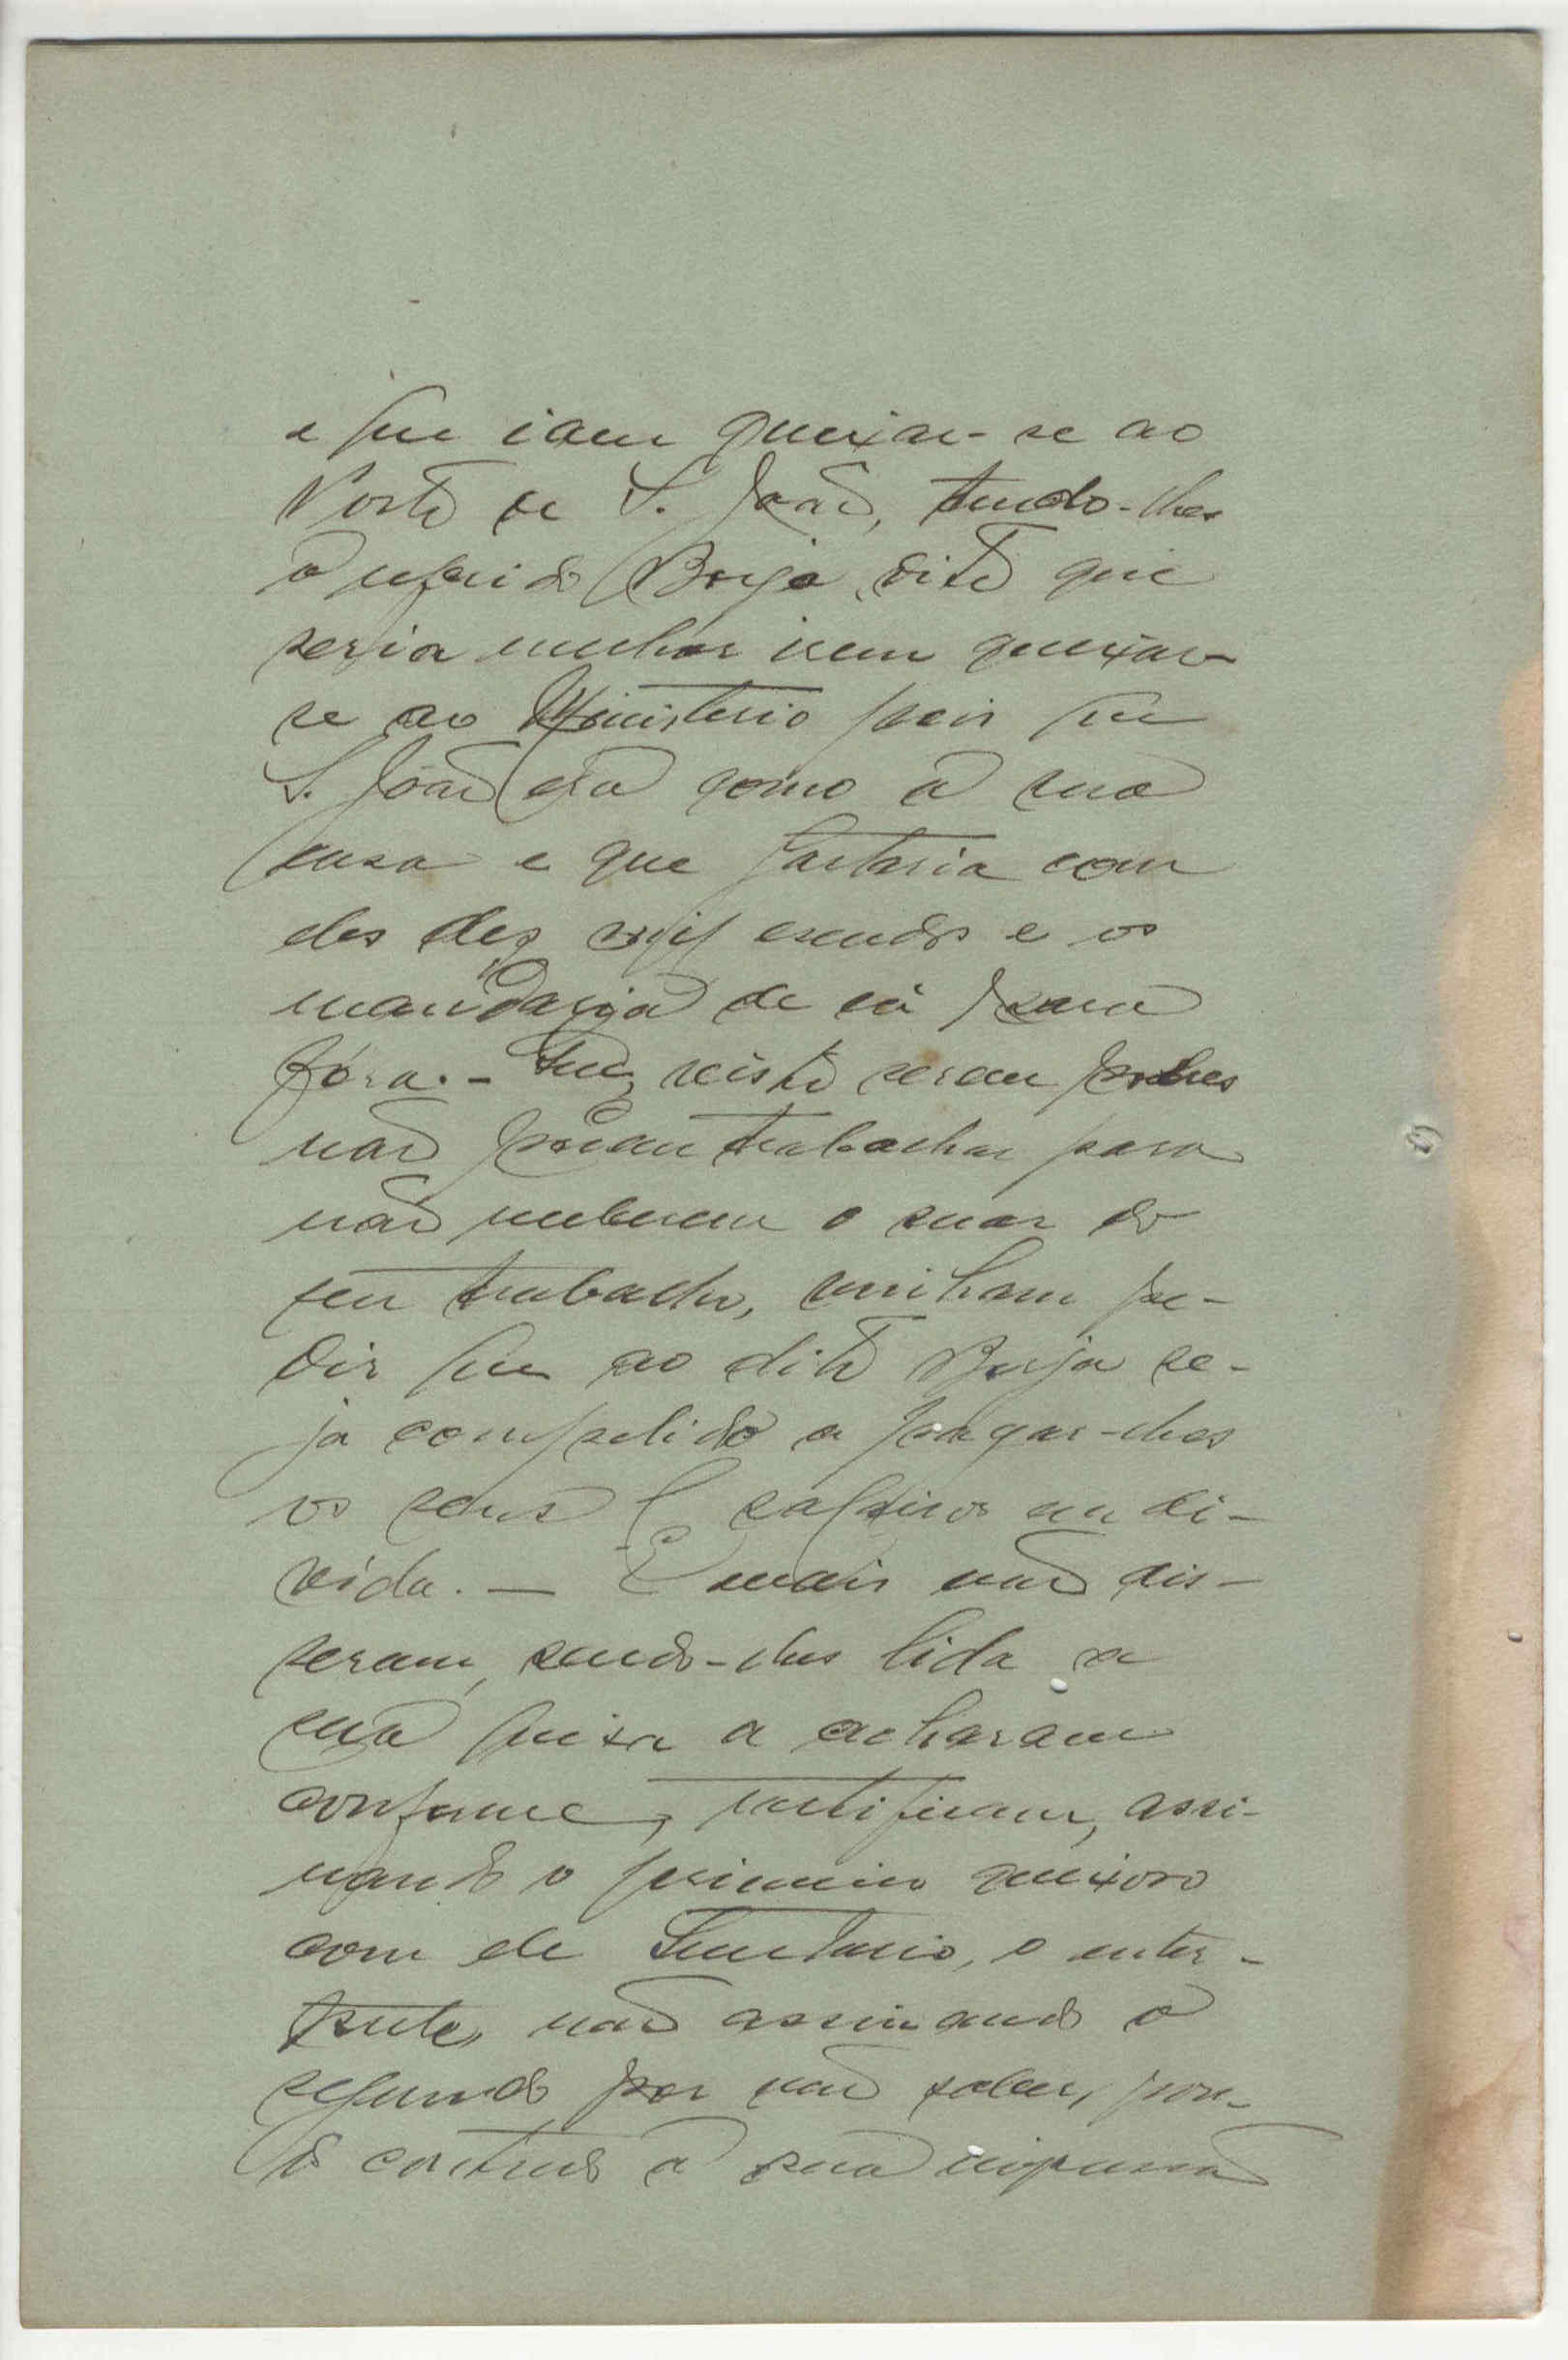 e que iam queixar-se ao
Posto de S. João, tendo-lhes
o referido Borja dito que
seria melhor irem queixar-
se ao Ministerio pois que
S. João era como a sua
casa e que gastaria com
eles dez mil escudos e os
mandaria de cá para
fóra. - Que, visto serem pobres
não podiam trabalhar para
não receberem o suor do
seu trabalho, vinham pe-
dir que ao dito Borja se-
ja compelido a pagar-lhes
os seus salarios em di-
vida. — E mais não dis-
seram, sendo-lhes lida a
sua queixa a acharam
conforme, ratificam, assi-
nando o primeiro queixoso
com ele Secretario, o inter-
prete, não assinando o
segundo por não saber, pon-
do contudo a sua impressão